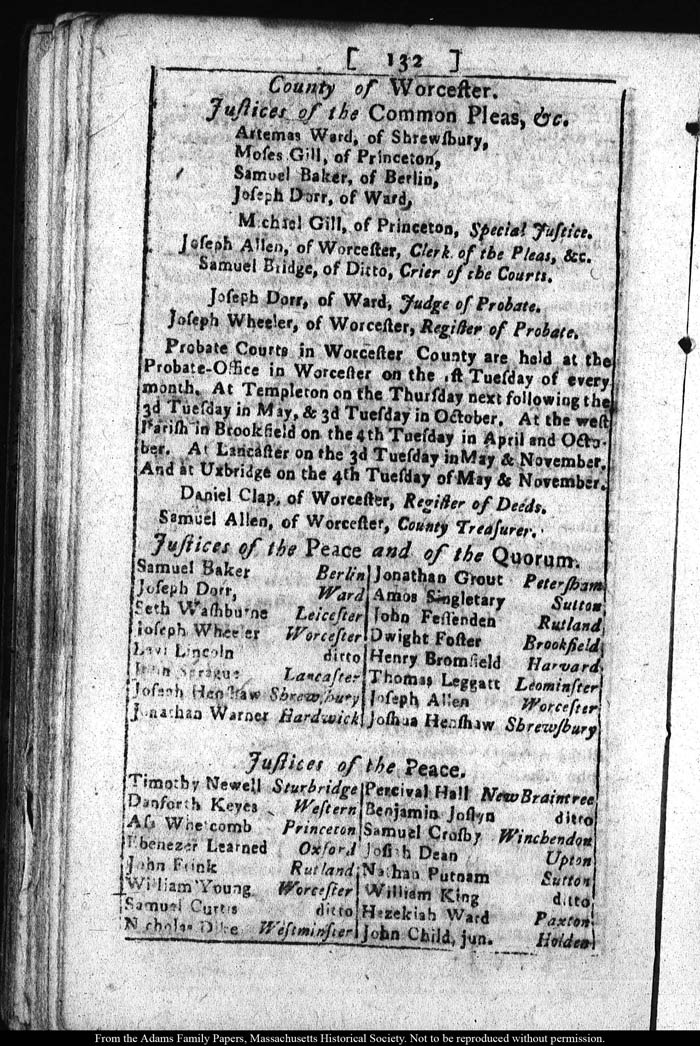 [ 132 ]
County of Worceſter.
Juſtices of the Common Pleas, &c.
Artemas Ward, of Shrewſbury,
Moſes Gill, of Princeton,
Samuel Baker, of Berlin,
Joſeph Dorr, of Ward,
Michael Gill, of Princeton, Special Juſtice.
Joſeph Allen, of Worceſter, Clerk of the Pleas, &c.
Samuel Bridge, of Ditto, Crier of the Courts.
Joſeph Dorr, of Ward, Judge of Probate.
Joſeph Wheeler, of Worceſter, Regiſter of Probate.
Probate Courts in Worceſter County are held at the
Probate-Office in Worceſter on the 1ſt Tueſday of every
month. At Templeton on the Thurſday next following the
3d Tueſday in May, & 3d Tueſday in October. At the weſt
Pariſh in Brookfield on the 4th Tueſday in April and Octo-
ber. At Lancaſter on the 3d Tueſday in May & November.
And at Uxbridge on the 4th Tueſday of May & November.
Daniel Clap, of Worceſter, Regiſter of Deeds.
Samuel Allen, of Worceſter, County Treaſurer.
Juſtices of the Peace and of the Quorum.
Samuel Baker Berlin
Joſeph Dorr, Ward
Seth Waſhburne Leiceſter
Joſeph Wheeler Worceſter
Levi Lincoln ditto
John Sprague Lancaſter
Joſeph Henſhaw Shrewſbury
Jonathan Warner Hardwick
Jonathan Grout Peterſham
Amos Singletary Sutton
John Feſſenden Rutland
Dwight Foſter Brookfield
Henry Bromfield Harvard
Thomas Leggatt Leominſter
Joſeph Allen Worceſter
Joſhua Henſhaw Shrewſbury
Juſtices of the Peace.
Timothy Newell Sturbridge
Danforth Keyes Weſtern
Aſa Whetcomb Princeton
Ebenezer Learned Oxford
John Frink Rutland
William Young Worceſter
Samuel Curtis ditto
Nicholas Dike Weſtminſter
Percival Hall New Braintree
Benjamin Joſlyn ditto
Samuel Croſby Winchendon
Joſiah Dean Upton
Nathan Putnam Sutton
William King ditto
Hezekiah Ward Paxton
John Child, jun. Holden
From the Adams Family Papers, Massachusetts Historical Society. Not to be reproduced without permission.